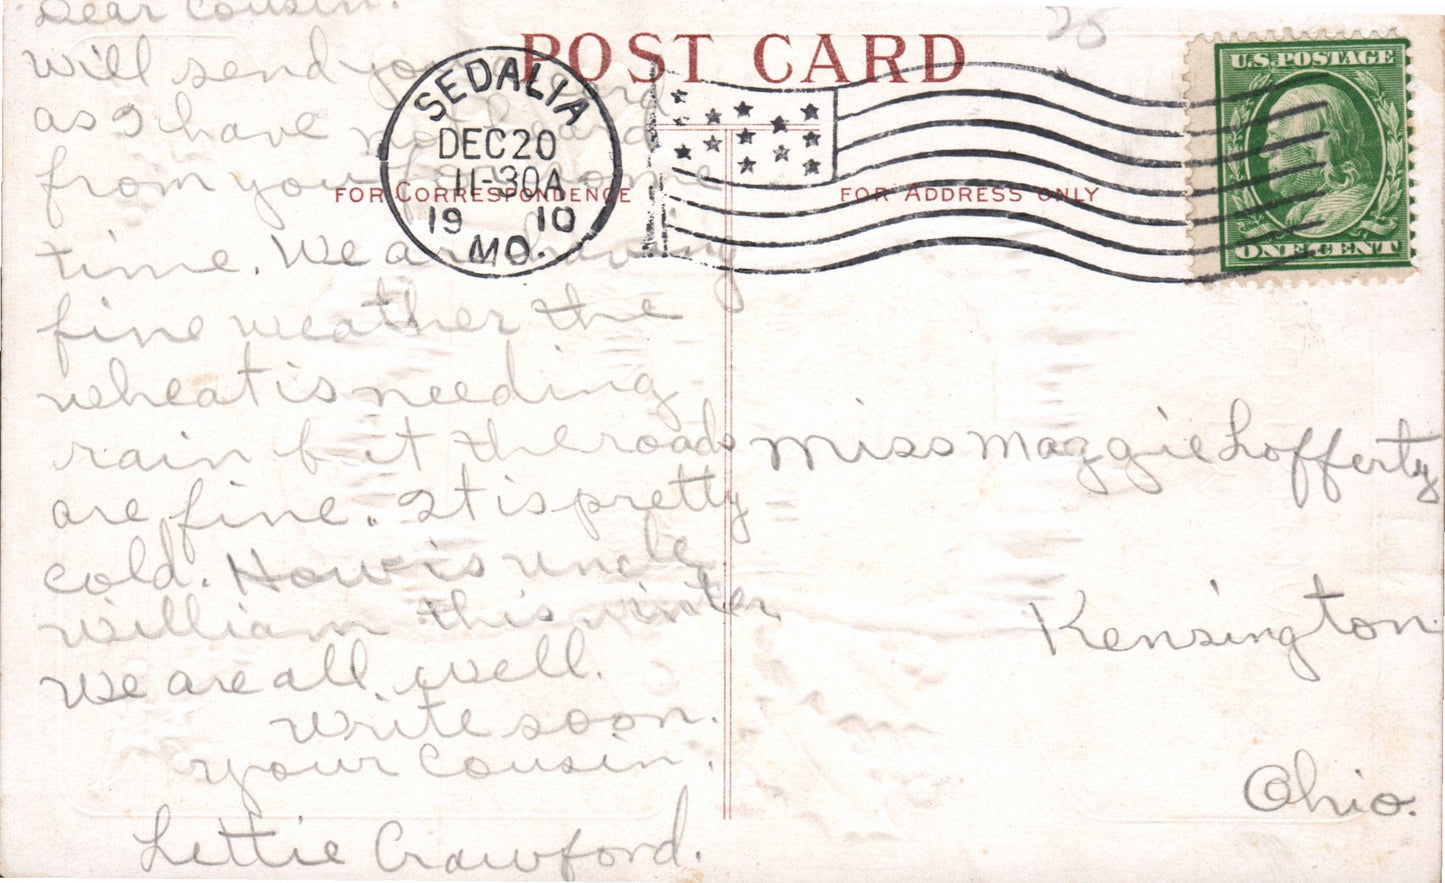 Dear Cousin.
will send you a card
as I have not heard
from you for some
time. We are having
fine weather the
wheat is needing
rain but the roads
are fine. It is pretty
cold. How is uncle
William this winter
We are all well.
write soon.
your Cousin.
Lettie Crawford.
POST CARD
FOR CORRESPONDENCE
FOR ADDRESS ONLY
SEDALIA
DEC 20
11-30A
19 10
MO.
28
U.S. POSTAGE
ONE CENT
Miss Maggie Lofferty
Kensington
Ohio.